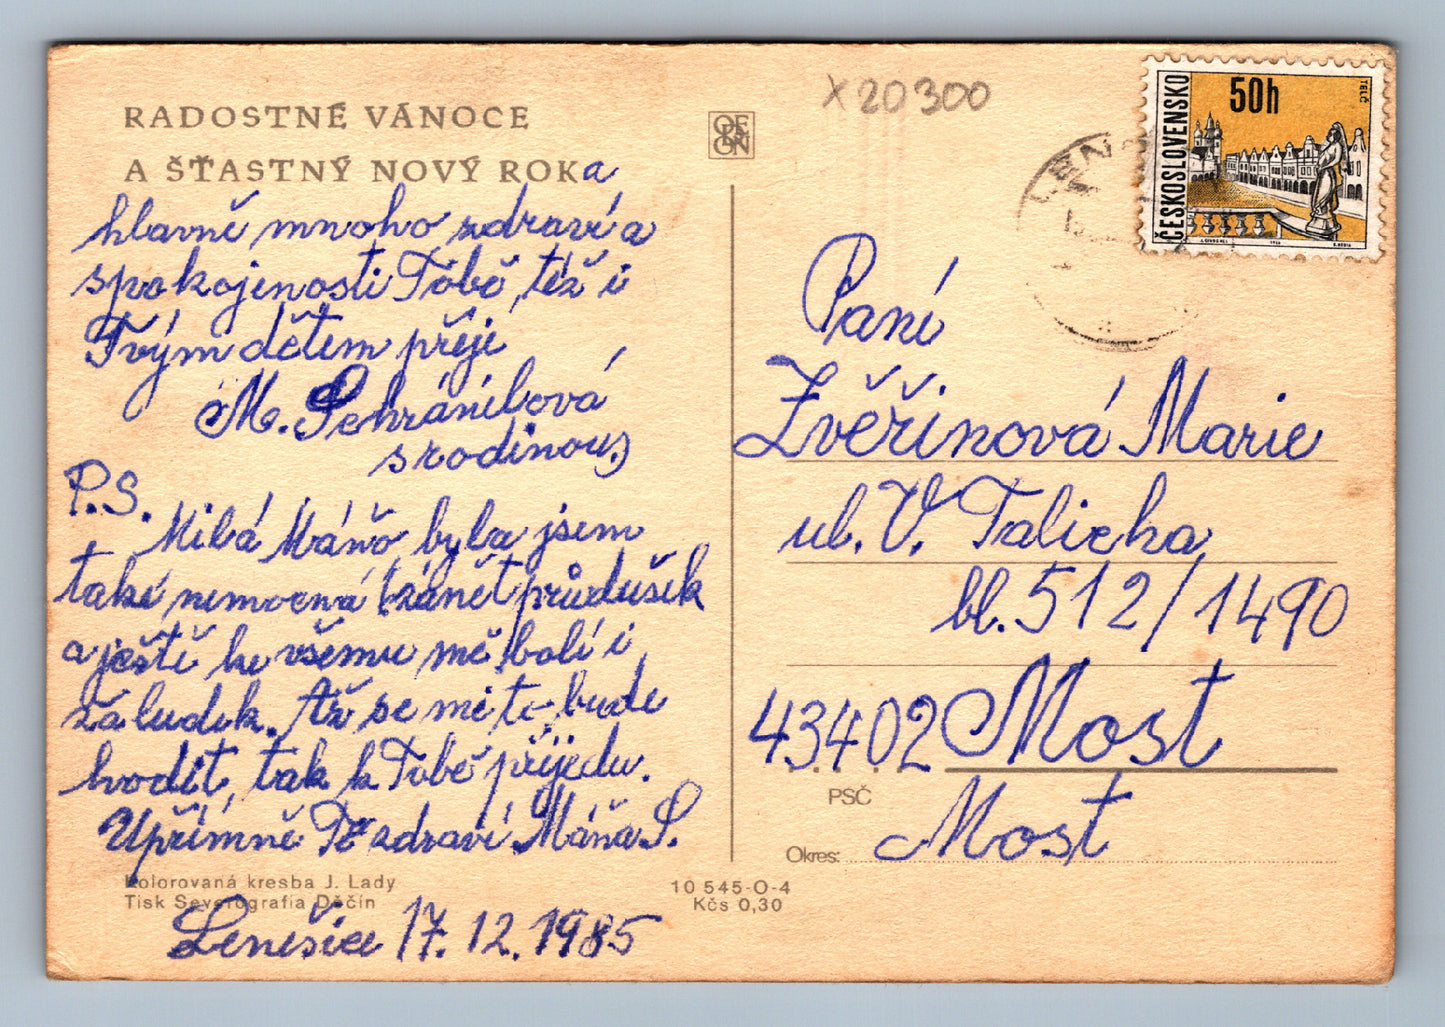 RADOSTNÉ VÁNOCE
A ŠŤASTNÝ NOVÝ ROK a
hlavně mnoho zdraví a
spokojenosti Tobě, též i
Tvým dětem přeje
M.
s rodinou,
P.S.
Milá Máňo byla jsem
také nemocná zánět průdušek
a ještě ke všemu mě bolí i
žaludek. Až se mi to bude
hodit, tak k Tobě přijedu.
Upřímně Tě zdraví Máňa S.
Kolorovaná kresba J. Lady
Tisk Severografia Děčín
Lenešice 17.12.1985
10 545-O-4
Kčs 0,30
x 20300
ČESKOSLOVENSKO
50h
TELČ
Paní
Zvěřinová Marie
ul. V. Talicha
bl. 512/1490
43402 Most
PSČ
Okres: Most